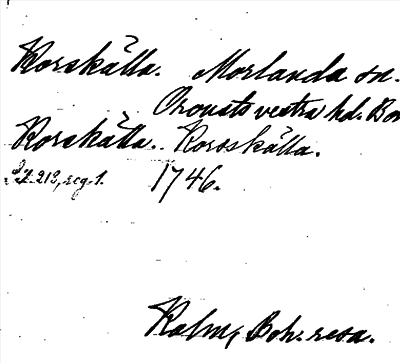 Korskälla. Morlanda sn.
Orousts vestra hd. Boh
Korskälla. Korsskälla.
S. 213, reg. 1. 1746.
Kalm, Boh. resa.